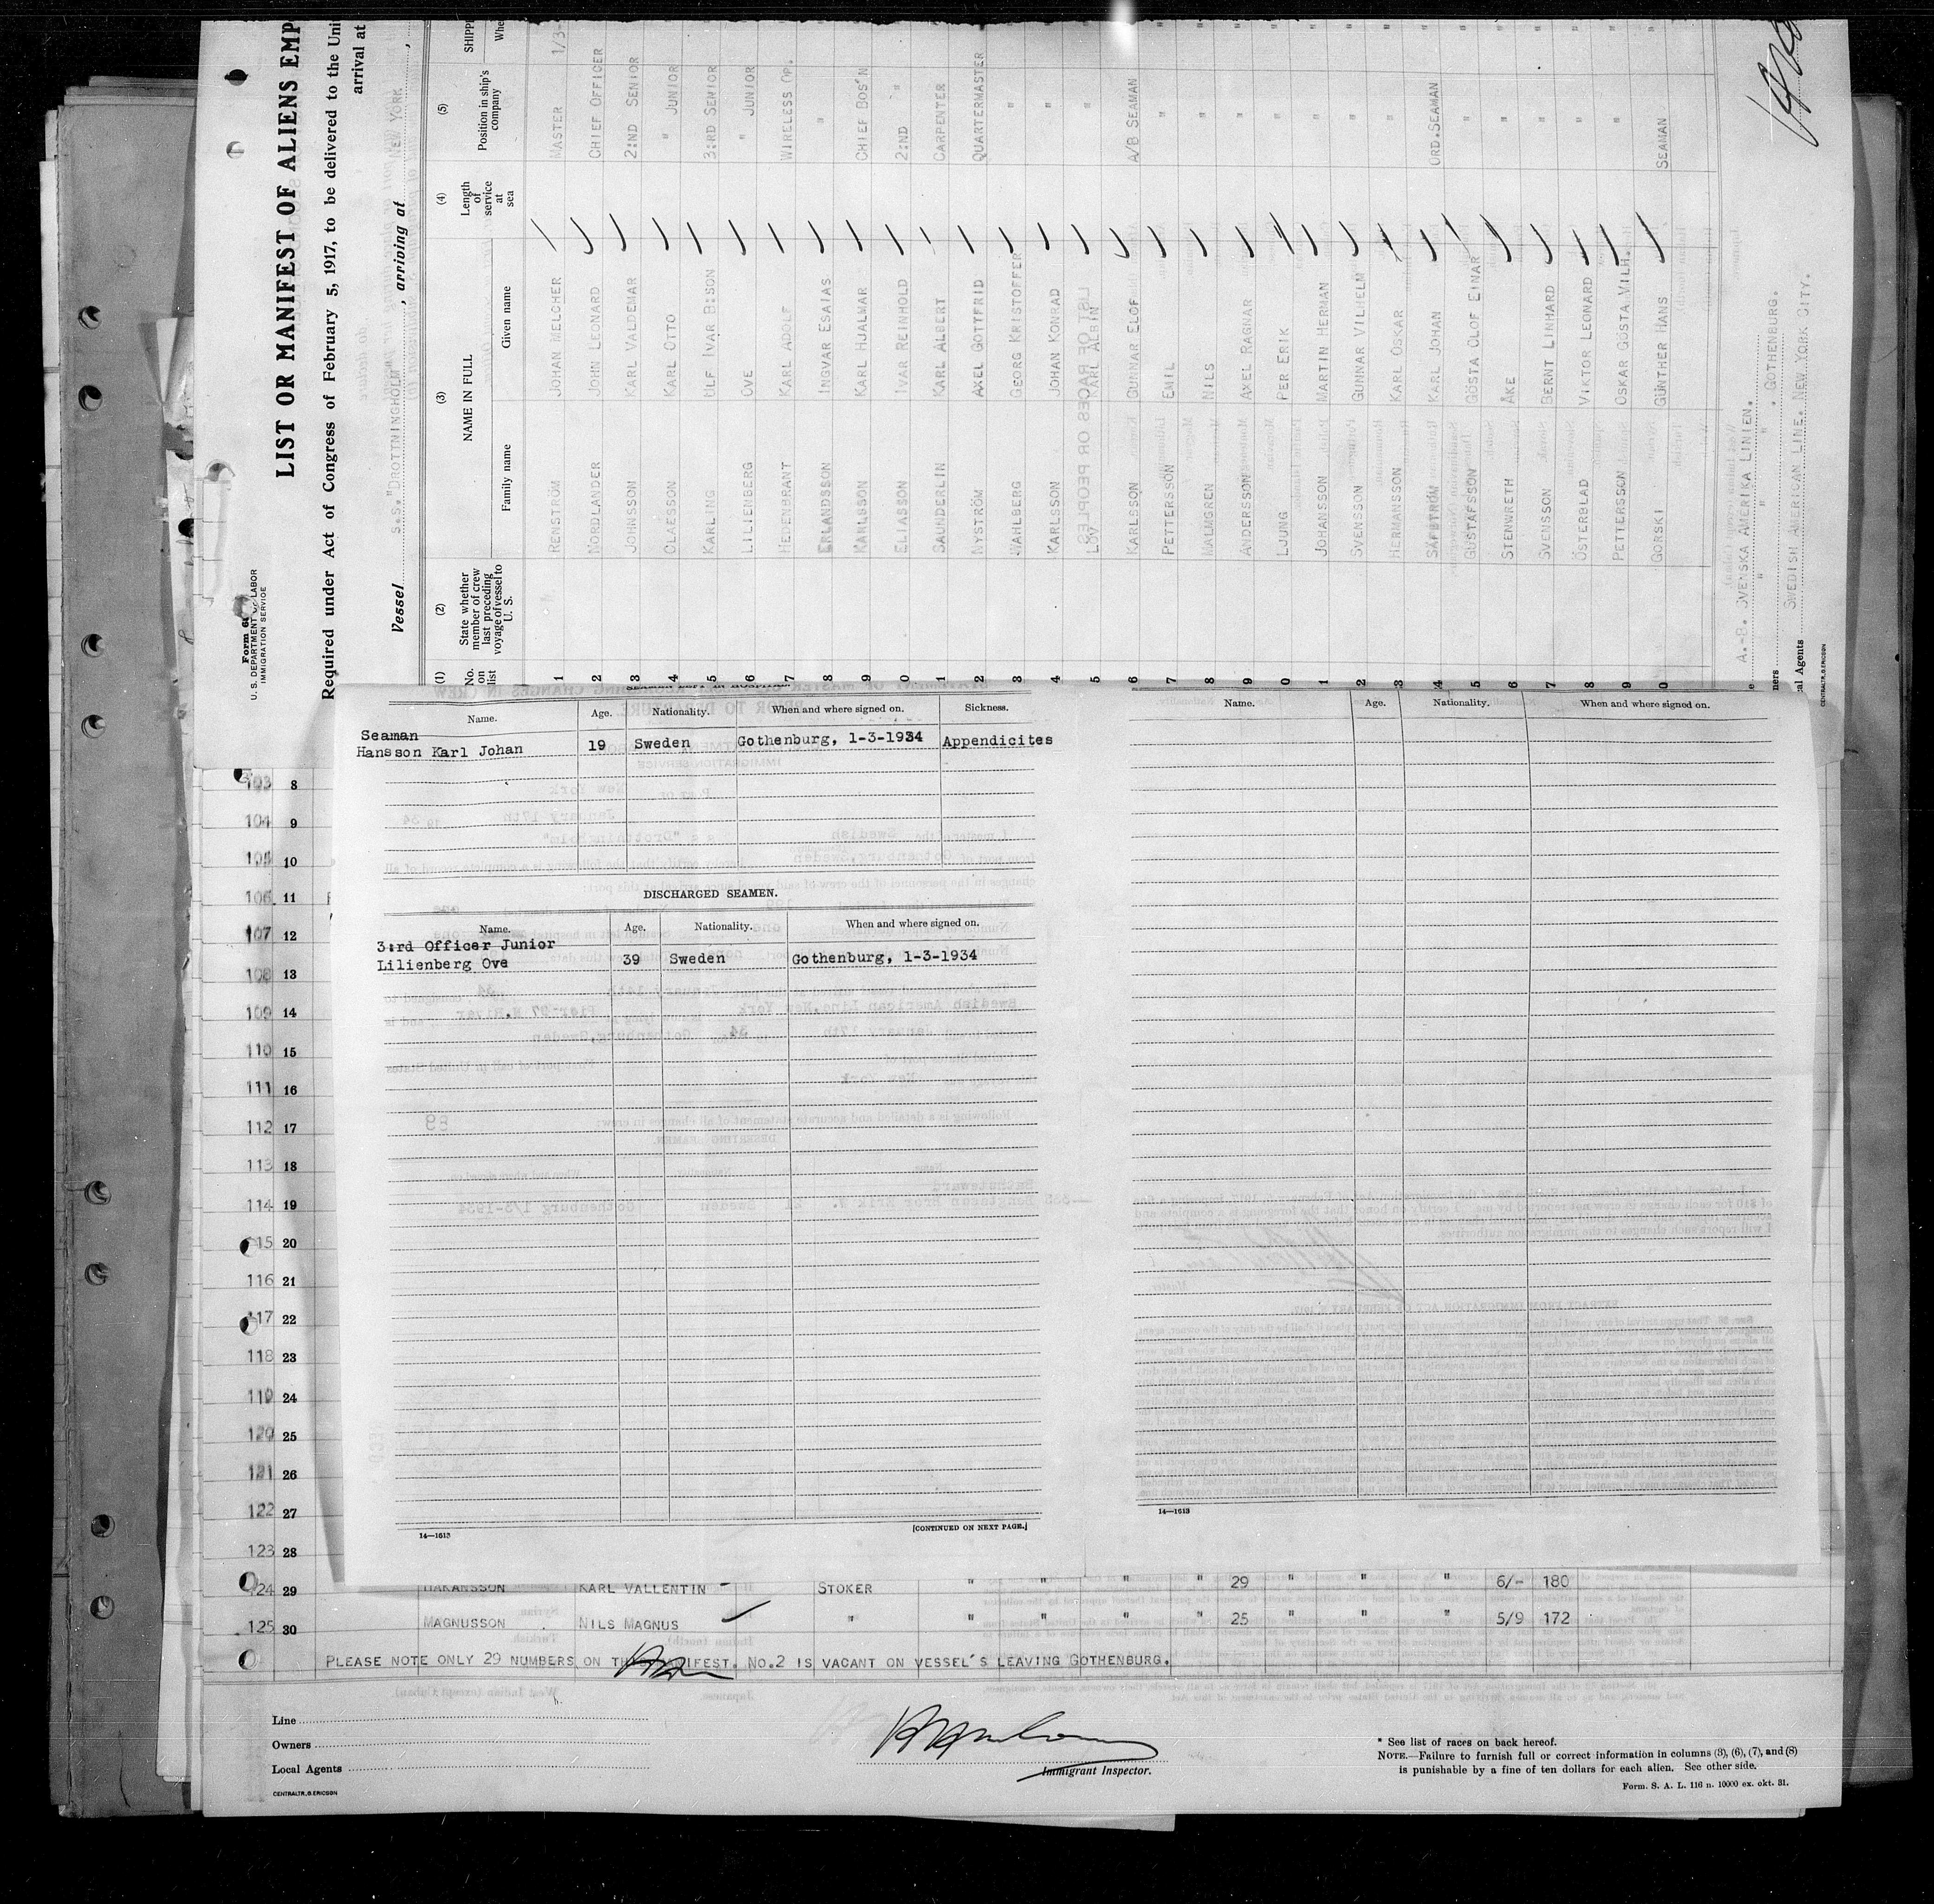 Form 6
U. S. DEPARTMENT OF LABOR
IMMIGRATION SERVICE
LIST OR MANIFEST OF ALIENS EMP
Required under Act of Congress of February 5, 1917, to be delivered to the Uni
arrival at
Vessel S.S. "DROTTNINGHOLM", arriving at NEW YORK
(1) (2) (3) (4) (5)
No. on list State whether member of crew last preceding voyage of vessel to U. S. NAME IN FULL Length of service at sea Position in ship's company SHIPP
Family name Given name Whe
1 RENSTRÖM JOHAN MELCHER MASTER 1/3-
2 NORDLANDER JOHN LEONARD CHIEF OFFICER "
3 JOHNSSON KARL VALDEMAR 2:ND SENIOR "
4 CLAESSON KARL OTTO " JUNIOR "
5 KARLING ULF IVAR B:SON 3:RD SENIOR "
6 LILIENBERG OVE " JUNIOR "
7 HEDENBRANT KARL ADOLF WIRELESS OP. "
8 ERLANDSSON INGVAR ESAIAS " "
9 KARLSSON KARL HJALMAR CHIEF BOS'N "
0 ELIASSON IVAR REINHOLD 2:ND " "
1 SAUNDERLIN KARL ALBERT CARPENTER "
2 NYSTRÖM AXEL GOTTFRID QUARTERMASTER "
3 WAHLBERG GEORG KRISTOFFER " "
4 KARLSSON JOHAN KONRAD " "
5 LÖV KARL ALBIN " "
6 KARLSSON GUNNAR ELOF A/B SEAMAN "
7 PETTERSSON EMIL " "
8 MALMGREN NILS " "
9 ANDERSSON AXEL RAGNAR " "
0 LJUNG PER ERIK " "
1 JOHANSSON MARTIN HERMAN " "
2 SVENSSON GUNNAR VILHELM " "
3 HERMANSSON KARL OSKAR " "
4 SÄFSTRÖM KARL JOHAN ORD.SEAMAN "
5 GUSTAFSSON GÖSTA OLOF EINAR " "
6 STENWRETH ÅKE " "
7 SVENSSON BERNT LINHARD " "
8 ÖSTERBLAD VIKTOR LEONARD " "
9 PETTERSSON OSKAR GÖSTA VILH. " "
0 GORSKI GÜNTHER HANS SEAMAN "
e A.-B. SVENSKA AMERIKA LINIEN.
ners " " " . GOTHENBURG.
al Agents SWEDISH AMERICAN LINE. NEW YORK CITY.
CENTRALTR. G. ERICSON
SEAMAN LEFT IN HOSPITAL.
Name. Age. Nationality. When and where signed on. Sickness.
Seaman
Hansson Karl Johan 19 Sweden Gothenburg, 1-3-1934 Appendicites
DISCHARGED SEAMEN.
Name. Age. Nationality. When and where signed on.
3:rd Officer Junior
Lilienberg Ove 39 Sweden Gothenburg, 1-3-1934
14—1613
[CONTINUED ON NEXT PAGE.]
Name. Age. Nationality. When and where signed on.
14—1613
103 8
104 9
105 10
106 11
107 12
108 13
109 14
110 15
111 16
112 17
113 18
114 19
115 20
116 21
117 22
118 23
119 24
120 25
121 26
122 27
123 28
124 29 HAKANSSON KARL VALLENTIN STOKER " " " " 29 " " " 6/- 180
125 30 MAGNUSSON NILS MAGNUS " " " " " 25 " " " 5/9 172
PLEASE NOTE ONLY 29 NUMBERS ON THIS MANIFEST. NO.2 IS VACANT ON VESSEL'S LEAVING GOTHENBURG.
Line
Owners
Local Agents
CENTRALTR. G. ERICSON
Immigrant Inspector.
* See list of races on back hereof.
NOTE.—Failure to furnish full or correct information in columns (3), (6), (7), and (8)
is punishable by a fine of ten dollars for each alien. See other side.
Form. S. A. L. 116 n. 10000 ex. okt. 31.